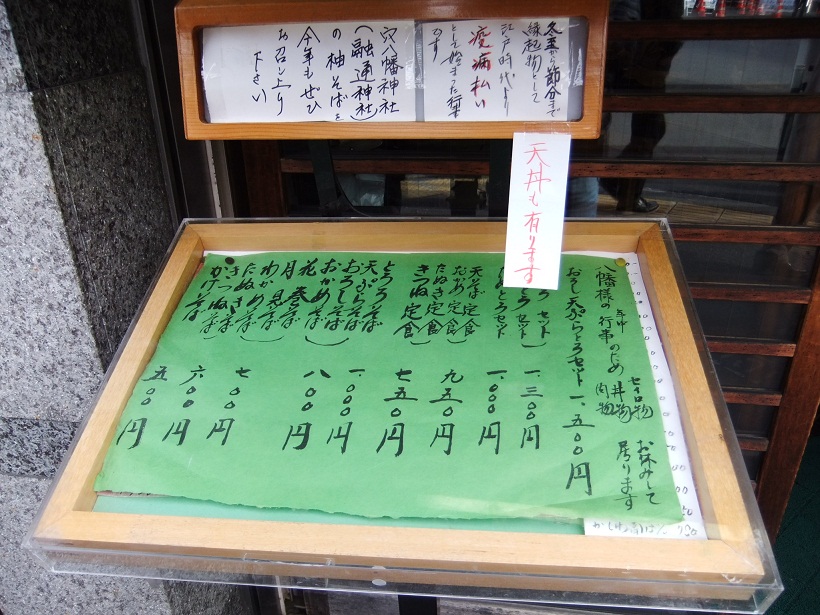 冬至から節分まで
縁起物として
江戸時代より
疫病払い
として始まった行事
です
穴八幡神社
(融通神社)
の柚そばを
今年もぜひ
お召し上り
下さい
天丼も有ります
八幡様の行事のため
セイロ物
丼物
肉物
お休みして
居ります
おろし天ぷらとろセット 一、五〇〇円
セット
一、三〇〇円
とろセット
一、〇〇〇円
天そば定食
おかめ定食
九五〇円
たぬき定食
きつね定食
七五〇円
とろろそば
天ぷらそば
一、〇〇〇円
おろしそば
おかめそば
八〇〇円
花巻そば
月見そば
わかめそば
七〇〇円
たぬきそば
きつねそば
六〇〇円
かけそば
五〇〇円